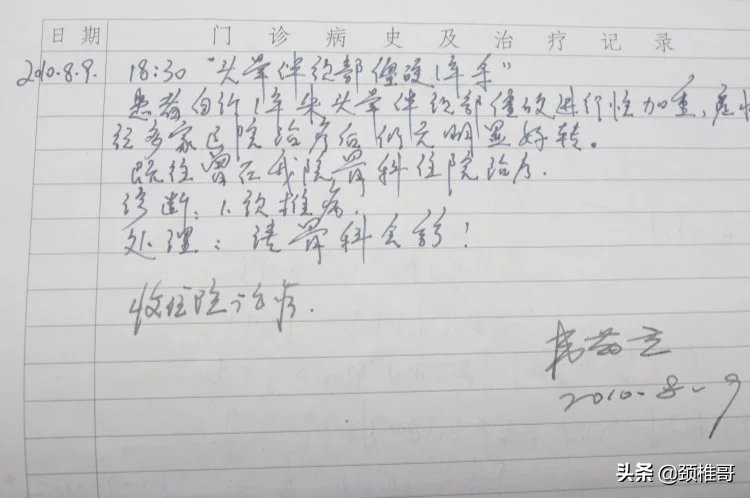 日期 门诊病史及治疗记录
2010.8.9. 18:30 "头晕伴颈部僵硬1年余"
患者自诉1年来头晕伴颈部僵硬进行性加重,症状
经多家医院治疗后仍无明显好转。
既往曾在我院骨科住院治疗.
诊断:1.颈椎病.
处理:请骨科会诊!
收住院治疗.
2010-8-9
头条 @颈椎哥